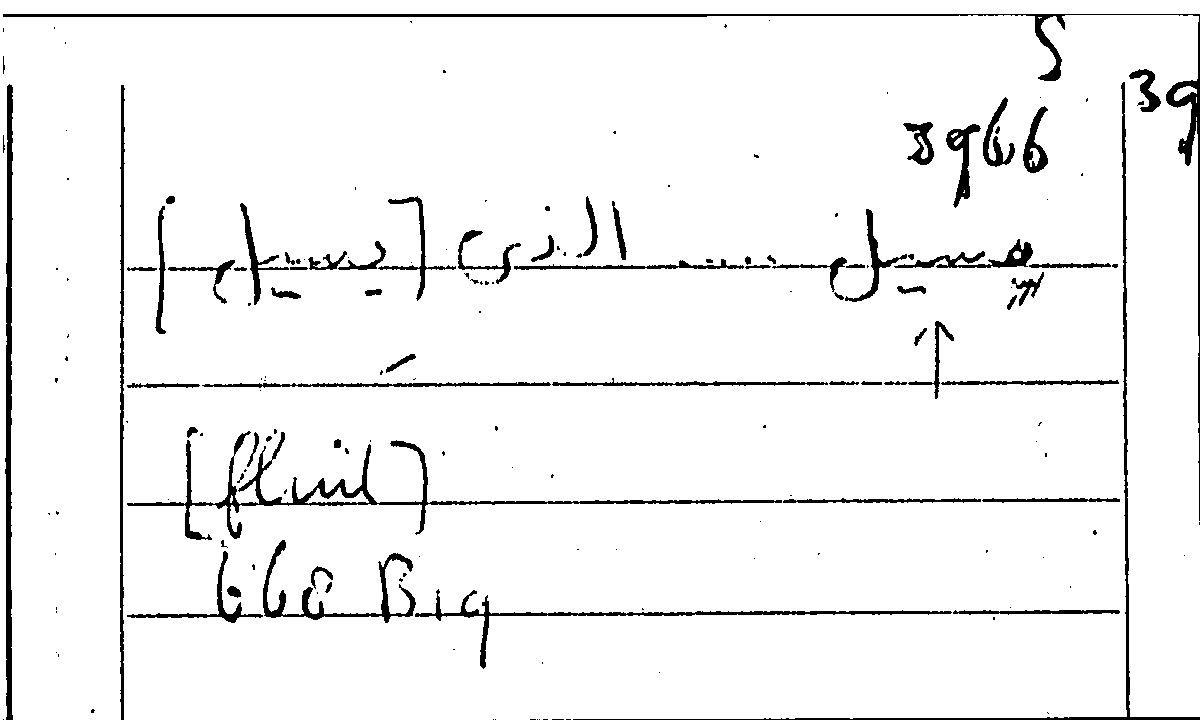 S
39
3966
مسيل ..... الذي [يسيل]
[fluid]
668 B19